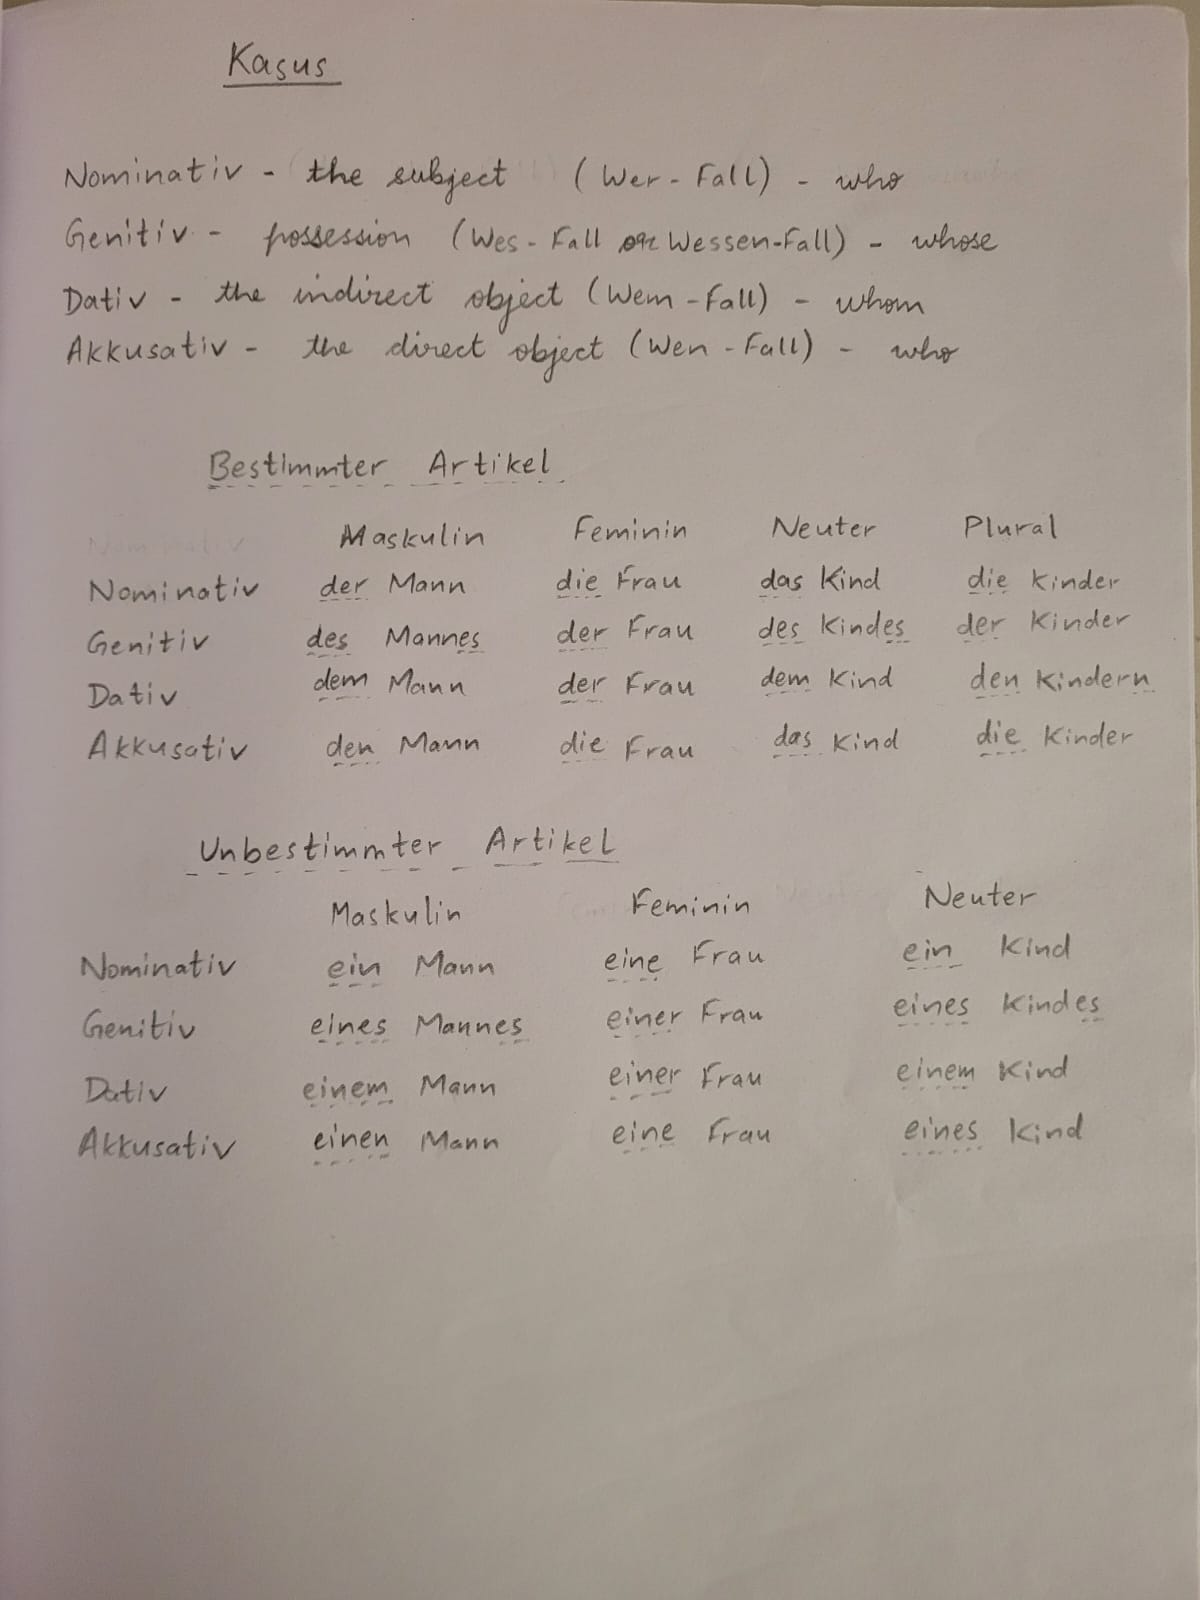 Kasus
Nominativ - the subject (Wer-Fall) - who
Genitiv - possession (Wes-Fall or Wessen-Fall) - whose
Dativ - the indirect object (Wem-Fall) - whom
Akkusativ - the direct object (Wen-Fall) - who
Bestimmter Artikel
Maskulin Feminin Neuter Plural
Nominativ der Mann die Frau das Kind die Kinder
Genitiv des Mannes der Frau des Kindes der Kinder
Dativ dem Mann der Frau dem Kind den Kindern
Akkusativ den Mann die Frau das Kind die Kinder
Unbestimmter Artikel
Maskulin Feminin Neuter
Nominativ ein Mann eine Frau ein Kind
Genitiv eines Mannes einer Frau eines Kindes
Dativ einem Mann einer Frau einem Kind
Akkusativ einen Mann eine Frau eines Kind